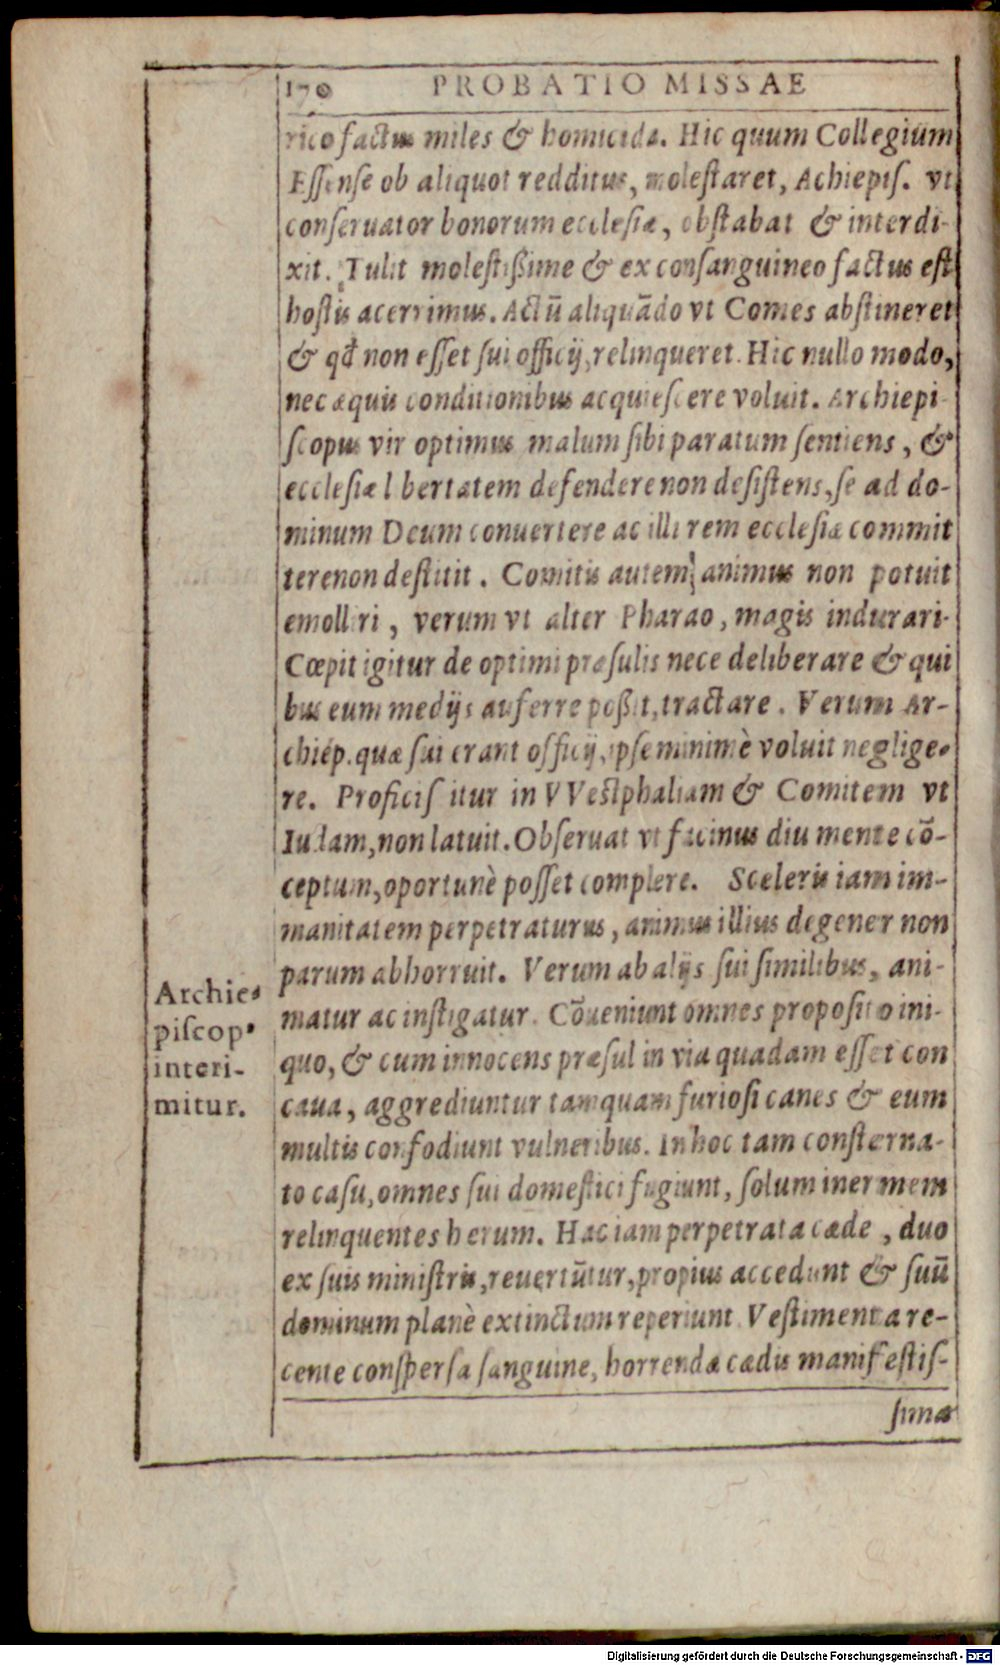 170 PROBATIO MISSAE
rico factus miles & homicida. Hic quum Collegium
Essense ob aliquot redditus, molestaret, Achiepis. vt
conseruator bonorum ecclesiæ, obstabat & interdi-
xit. Tulit molestißime & ex consanguineo factus est
hostis acerrimus. Actū aliquãdo vt Comes abstineret
& qđ non esset sui officij, relinqueret. Hic nullo modo,
nec æquis conditionibus acquiescere voluit. Archiepi-
scopus vir optimus malum sibi paratum sentiens, &
ecclesiæ l bertatem defendere non desistens, se ad do-
minum Deum conuertere ac illi rem ecclesiæ commit
tere non destitit. Comitis autem animus non potuit
emolliri, verum vt alter Pharao, magis indurari.
Cœpit igitur de optimi præsulis nece deliberare & qui
bus eum medijs auferre poßit, tractare. Verum Ar-
chiep. quæ sui erant officij, ipse minimè voluit neglige-
re. Proficis itur in VVestphaliam & Comitem vt
Iudam, non latuit. Obseruat vt facinus diu mente cō-
ceptum, oportunè posset complere. Sceleris iam im-
manitatem perpetraturus, animus illius degener non
parum abhorruit. Verum ab alijs sui similibus, ani-
matur ac instigatur. Cōueniunt omnes proposito ini-
quo, & cum innocens præsul in via quadam esset con
caua, aggrediuntur tamquam furiosi canes & eum
multis confodiunt vulneribus. In hoc tam consterna-
to casu, omnes sui domestici fugiunt, solum inermem
relinquentes herum. Hac iam perpetrata cæde, duo
ex suis ministris, reuertūtur, propius accedunt & suū
dominum planè extinctum reperiunt. Vestimenta re-
cente conspersa sanguine, horrendæ cædis manifestis-
simæ
Archie-
piscop.
interi-
mitur.
Digitalisierung gefördert durch die Deutsche Forschungsgemeinschaft - DFG